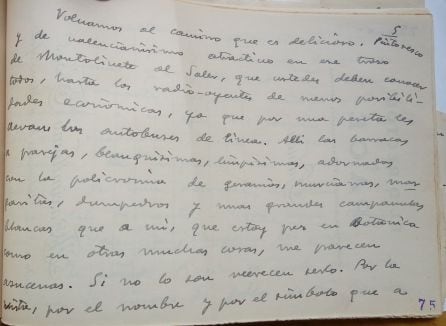 5
Volvamos al camino que es delicioso. Pintoresco
y de valencianísimo atractivo en ese trozo
de Montolivete al Saler, que ustedes deben conocer
todos, hasta los radio-oyentes de menos posibili-
dades económicas, ya que por una peseta les
llevan los autobuses de línea. Allí las barracas
a parejas, blanquísimas, limpísimas, adornadas
con la policromía de geranios, murcianas, mar
garitas, dompedros y unas grandes campanulas
blancas que a mí, que estoy pez en Botánica
como en otras muchas cosas, me parecen
azucenas. Si no lo son merecen serlo. Por la
vista, por el nombre y por el símbolo que a
75